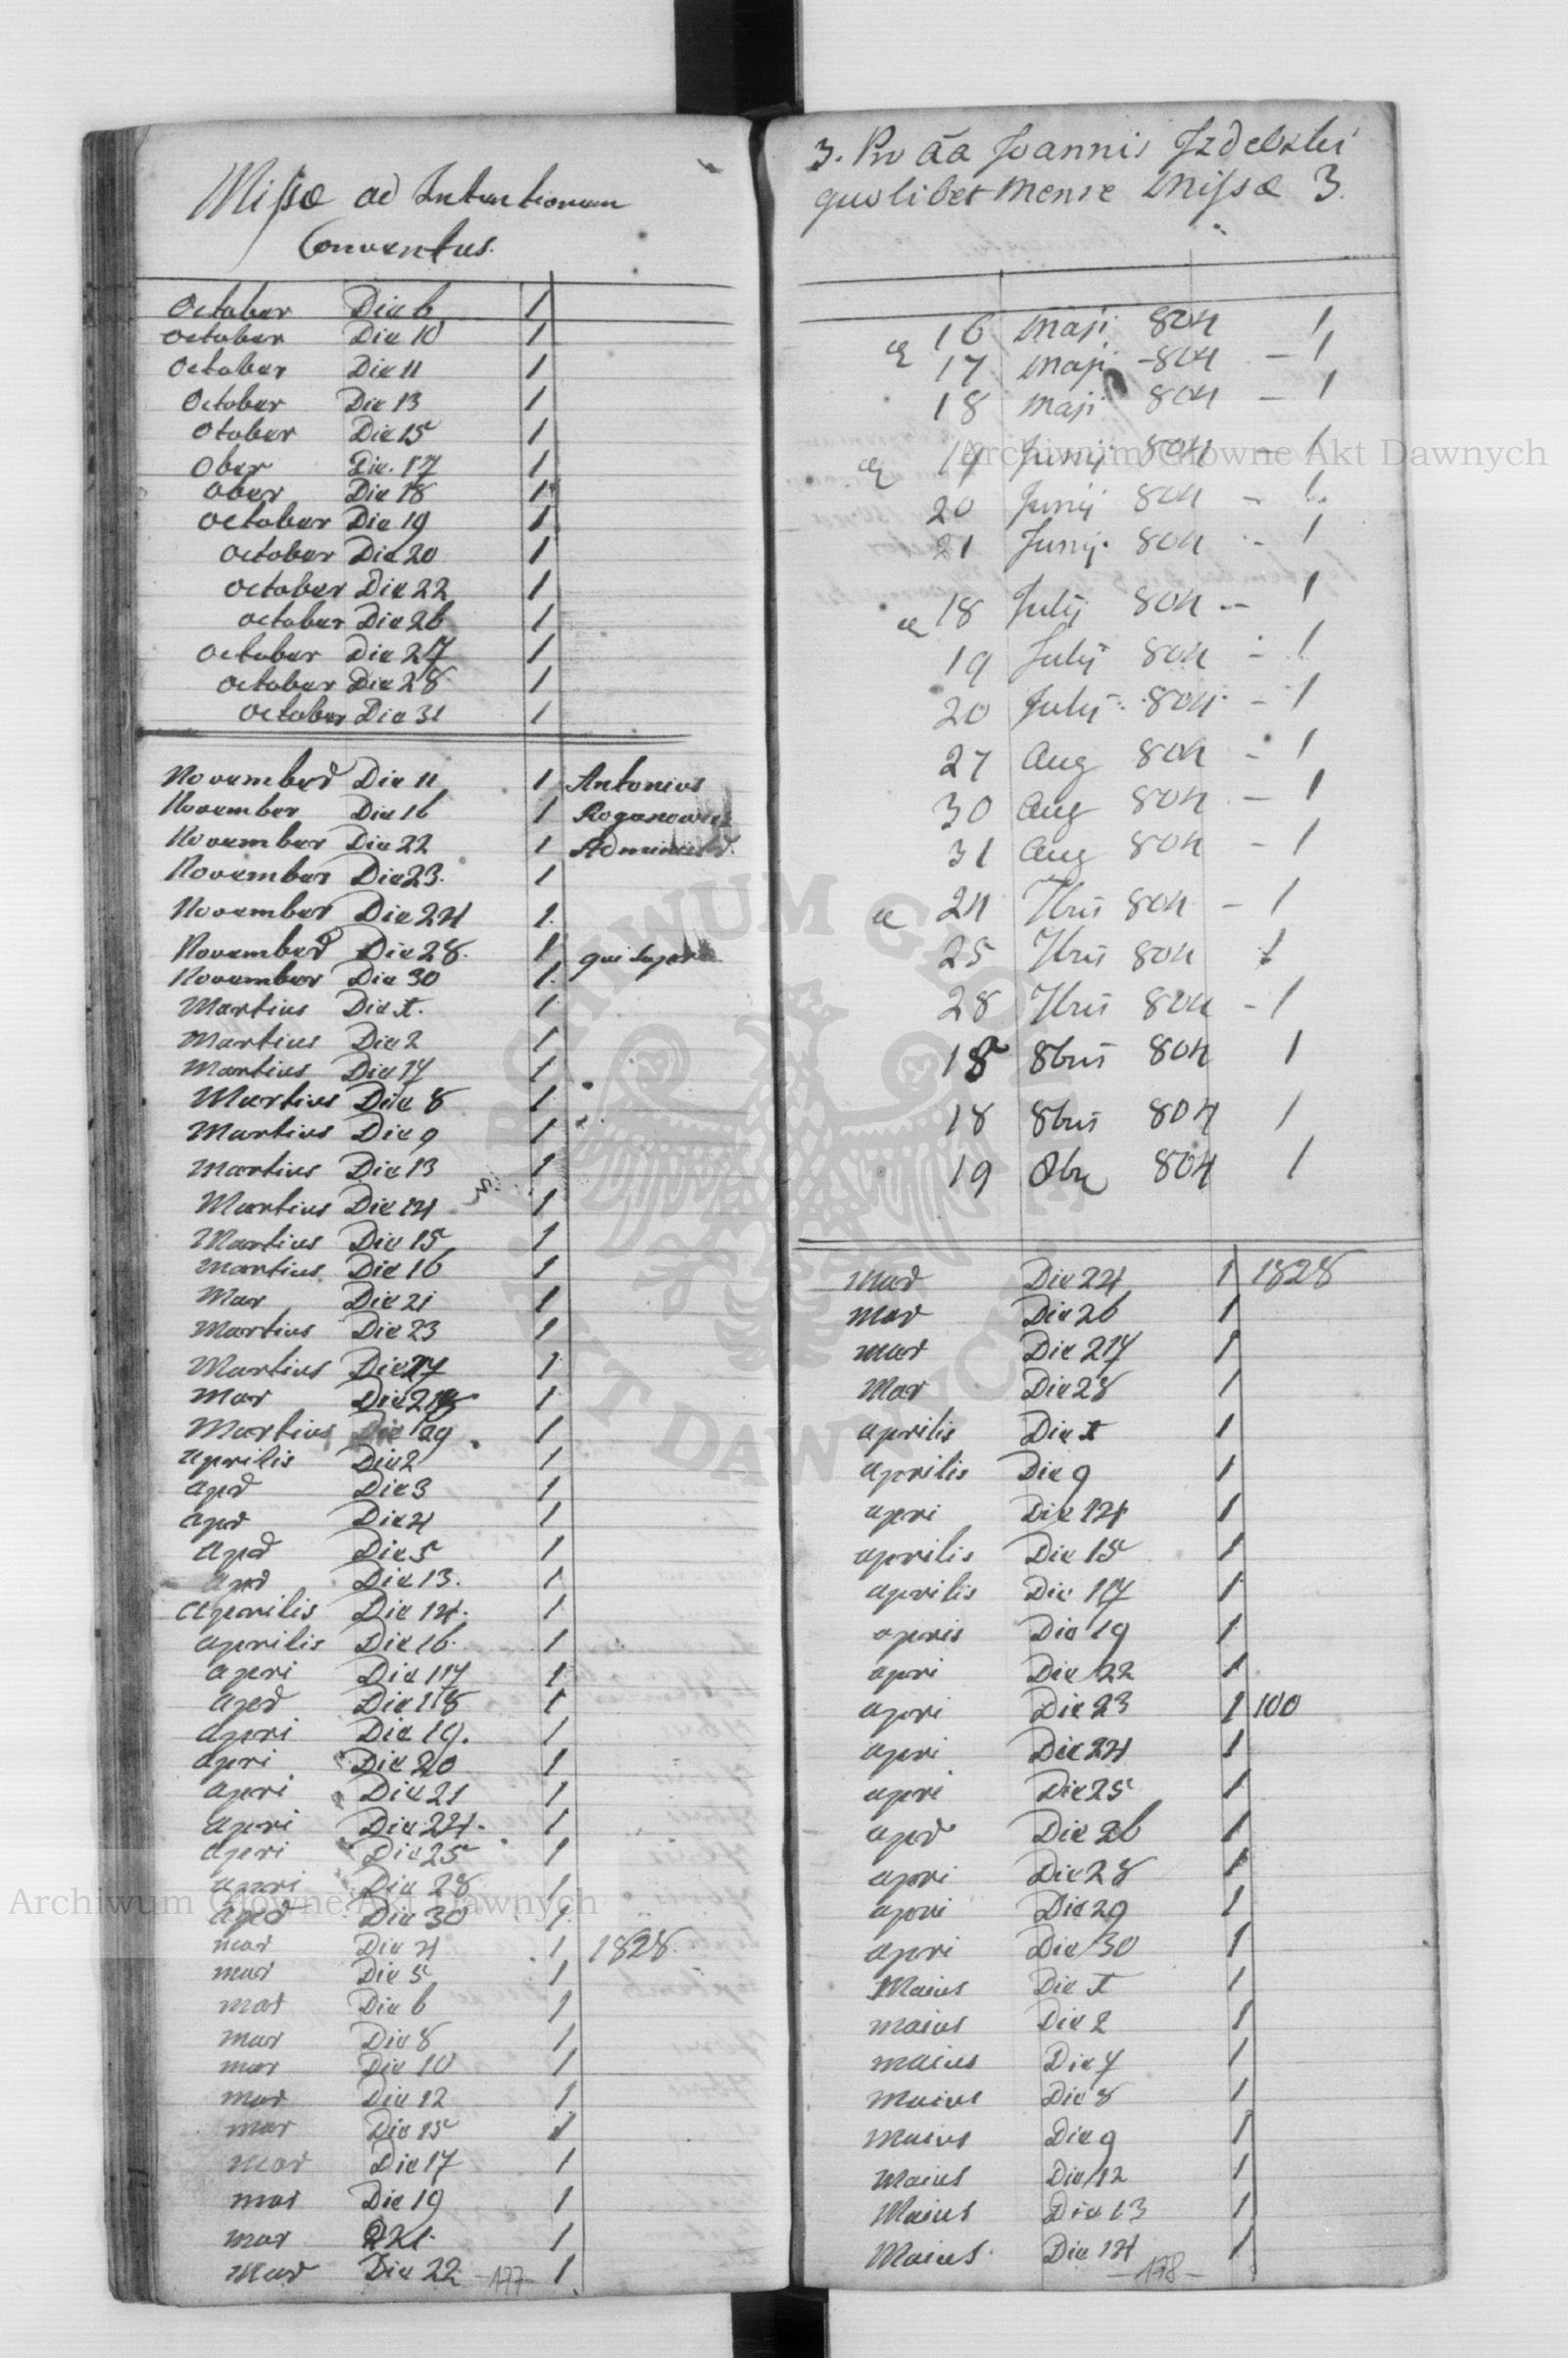 Missæ ad Intentionem
Conventus.
October Die 6 1
October Die 10 1
October Die 11 1
October Die 13 1
Otober Die 15 1
Ober Die. 17 1
ober Die 18 1
October Die 19 1
October Die 20 1
October Die 22 1
October Die 26 1
October Die 27 1
October Die 28 1
October Die 31 1
November Die 11 1 Antonius
November Die 16 1
November Die 22 1
November Die 23. 1
November Die 24 1.
November Die 28. 1 qui
November Die 30 1.
Martius Die I. 1
Martius Die 2 1
Martius Die 17 1
Martius Die 8 1
Martius Die 9 1
Martius Die 13 1
Martius Die 14 1
Martius Die 15 1
Martius Die 16 1
Mar Die 21 1
Martius Die 23 1
Martius Die 27 1
Mar Die 1
Martius Die 29 1
Aprilis Die 2 1
Apr Die 3 1
Apr Die 4 1
Apr Die 5 1
Apr Die 13. 1
Aprilis Die 14. 1
Aprilis Die 16. 1
Apri Die 17 1
Apr Die 18 1
Apri Die 19. 1
Apri Die 20 1
Apri Die 21 1
Apri Die 24. 1
Apri Die 25 1
Apri Die 28 1
Apr Die 30 1
mar Die 4 1 1828.
mar Die 5 1
mar Die 6 1
mar Die 8 1
mar Die 10 1
mar Die 12 1
mar Die 15 1
mar Die 17 1
mar Die 19 1
mar 21. 1
Mar Die 22 1
-177-
3. Pro āā Joannis Izdebski
quolibet Mense Missæ 3.
16 Maji 804 1
17 Maji -804 - 1
18 Maji 804 - 1
19 Junij 804 - 1
20 Junij 804 - 1.
21 Junij. 804 - 1
18 Julij 804 - 1
19 Julij 804 - 1
20 Julij 804 - 1
27 Aug 804 - 1
30 Aug 804 - 1
31 Aug 804 - 1
24 7bris 804 - 1
25 7bris 804 1
28 7bris 804 - 1
15 8bris 804 1
18 8bris 804 1
19 8br 804 1
Mar Die 24 1 1828
Mar Die 26 1
Mar Die 27 1
Mar Die 28 1
Aprilis Die I 1
Aprilis Die 9 1
Apri Die 14 1
Aprilis Die 15 1
Aprilis Die 17 1
Apris Die 19 1
Apri Die 22 1
Apri Die 23 1 100
Apri Die 24 1
Apri Die 25 1
Apr Die 26 1
Apri Die 28 1
Apri Die 29 1
Apri Die 30 1
Maius Die I 1
Maius Die 2 1
Maius Die 7 1
Maius Die 8 1
Maius Die 9 1
Maius Die 12 1
Maius Die 13 1
Maius Die 14 1
-178-
Archiwum Główne Akt Dawnych
Archiwum Główne Akt Dawnych
ARCHIWUM GŁÓWNE AKT DAWNYCH